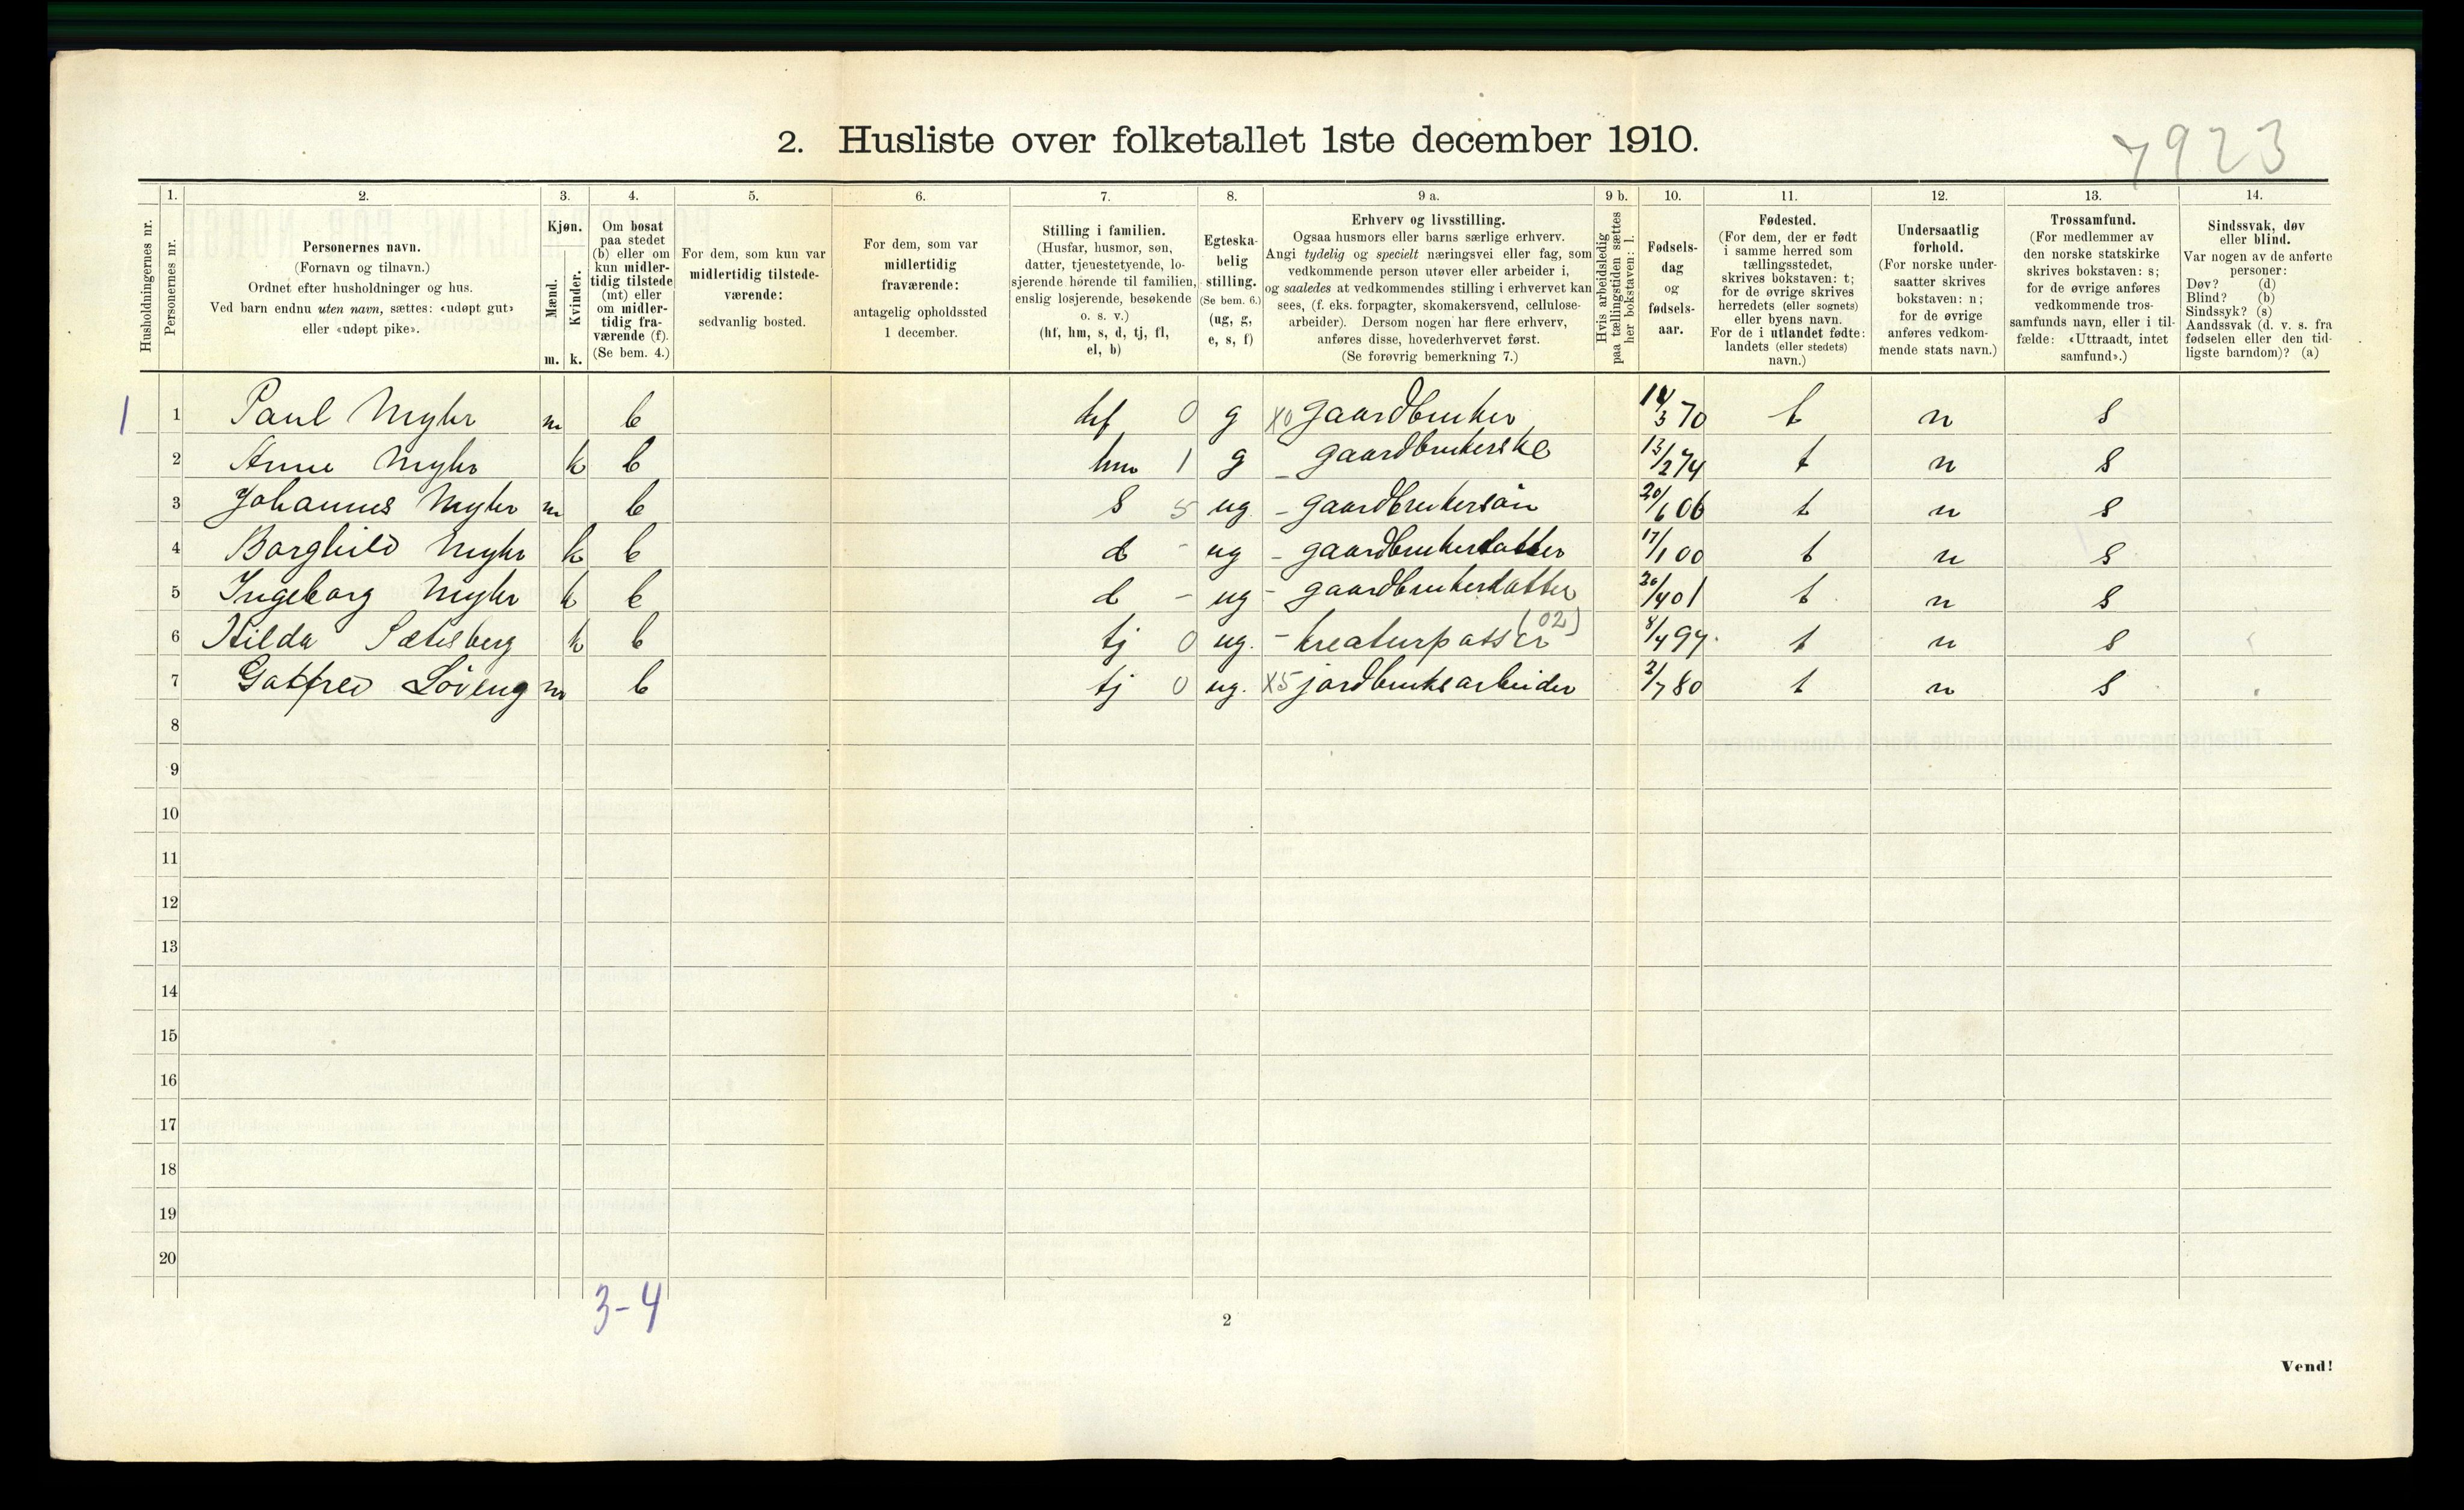 2. Husliste over folketallet 1ste december 1910.
7923
Husholdningernes nr.
1.
Personernes nr.
2.
Personernes navn.
(Fornavn og tilnavn.)
Ordnet efter husholdninger og hus.
Ved barn endnu uten navn, sættes: «udøpt gut»
eller «udøpt pike».
3.
Kjøn.
Mænd.
Kvinder.
m. k.
4.
Om bosat
paa stedet
(b) eller om
kun midler-
tidig tilstede
(mt) eller
om midler-
tidig fra-
værende (f).
(Se bem. 4.)
5.
For dem, som kun var
midlertidig tilstede-
værende:
sedvanlig bosted.
6.
For dem, som var
midlertidig
fraværende:
antagelig opholdssted
1 december.
7.
Stilling i familien.
(Husfar, husmor, søn,
datter, tjenestetyende, lo-
sjerende hørende til familien,
enslig losjerende, besøkende
o. s. v.)
(hf, hm, s, d, tj, fl,
el, b)
8.
Egteska-
belig
stilling.
(Se bem. 6.)
(ug, g,
e, s, f)
9 a.
Erhverv og livsstilling.
Ogsaa husmors eller barns særlige erhverv.
Angi tydelig og specielt næringsvei eller fag, som
vedkommende person utøver eller arbeider i,
og saaledes at vedkommendes stilling i erhvervet kan
sees, (f. eks. forpagter, skomakersvend, cellulose-
arbeider). Dersom nogen har flere erhverv,
anføres disse, hovederhvervet først.
(Se forøvrig bemerkning 7.)
9 b.
Hvis arbeidsledig
paa tællingstiden sættes
her bokstaven: l.
10.
Fødsels-
dag
og
fødsels-
aar.
11.
Fødested.
(For dem, der er født
i samme herred som
tællingsstedet,
skrives bokstaven: t;
for de øvrige skrives
herredets (eller sognets)
eller byens navn.
For de i utlandet fødte:
landets (eller stedets)
navn.)
12.
Undersaatlig
forhold.
(For norske under-
saatter skrives
bokstaven: n;
for de øvrige
anføres vedkom-
mende stats navn.)
13.
Trossamfund.
(For medlemmer av
den norske statskirke
skrives bokstaven: s;
for de øvrige anføres
vedkommende tros-
samfunds navn, eller i til-
fælde: «Uttraadt, intet
samfund».)
14.
Sindssvak, døv
eller blind.
Var nogen av de anførte
personer:
Døv? (d)
Blind? (b)
Sindssyk? (s)
Aandssvak (d. v. s. fra
fødselen eller den tid-
ligste barndom)? (a)
1 1 Paul Myhr m b hf 0 g X0 gaardbruker 3 70 t n s
2 Anne Myhr k b hm 1 g - gaardbrukerske 13/2 74 t n s
3 Johannes Myhr m b s 5 ug - gaardbrukersön 20/6 06 t n s
4 Borghild Myhr k b d - ug - gaardbrukerdatter 17/1 00 t n s
5 Ingeborg Myhr k b d - ug - gaardbrukerdatter 20/4 01 t n s
6 Hilda Sætesberg k b tj 0 ug. - kreaturpasser (02) t n s
7 Gotfred Löveng m b tj 0 ug. X5 jordbruksarbeider 2/7 80 t n s
8
9
10
11
12
13
14
15
16
17
18
19
20
3-4
2
Vend!